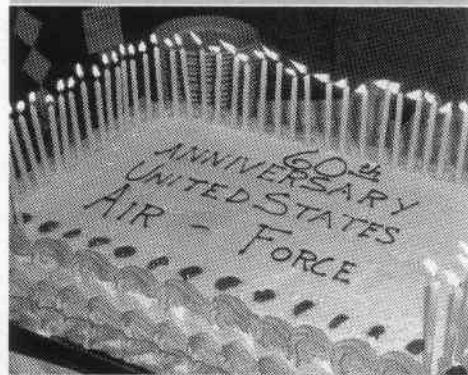 60th
ANNIVERSARY
UNITED STATES
AIR - FORCE